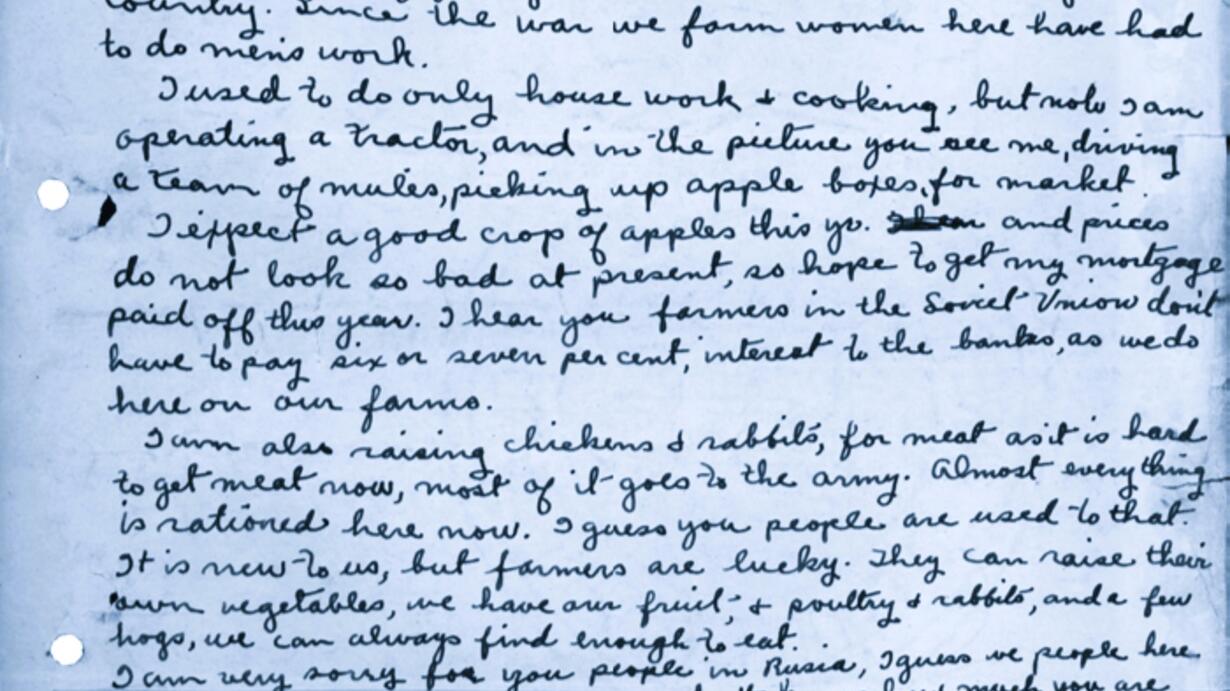 country. Since the war we farm women here have had
to do men's work.
I used to do only house work & cooking, but now I am
operating a tractor, and in the picture you see me, driving
a team of mules, picking up apple boxes, for market.
I expect a good crop of apples this yr. and prices
do not look so bad at present, so hope to get my mortgage
paid off this year. I hear you farmers in the Soviet Union don't
have to pay six or seven per cent, interest to the banks, as we do
here on our farms.
I am also raising chickens & rabbits, for meat as it is hard
to get meat now, most of it goes to the army. Almost everything
is rationed here now. I guess you people are used to that.
It is new to us, but farmers are lucky. They can raise their
own vegetables, we have our fruit, & poultry & rabbits, and a few
hogs, we can always find enough to eat.
I am very sorry for you people in Rusia, I guess we people here
much you are